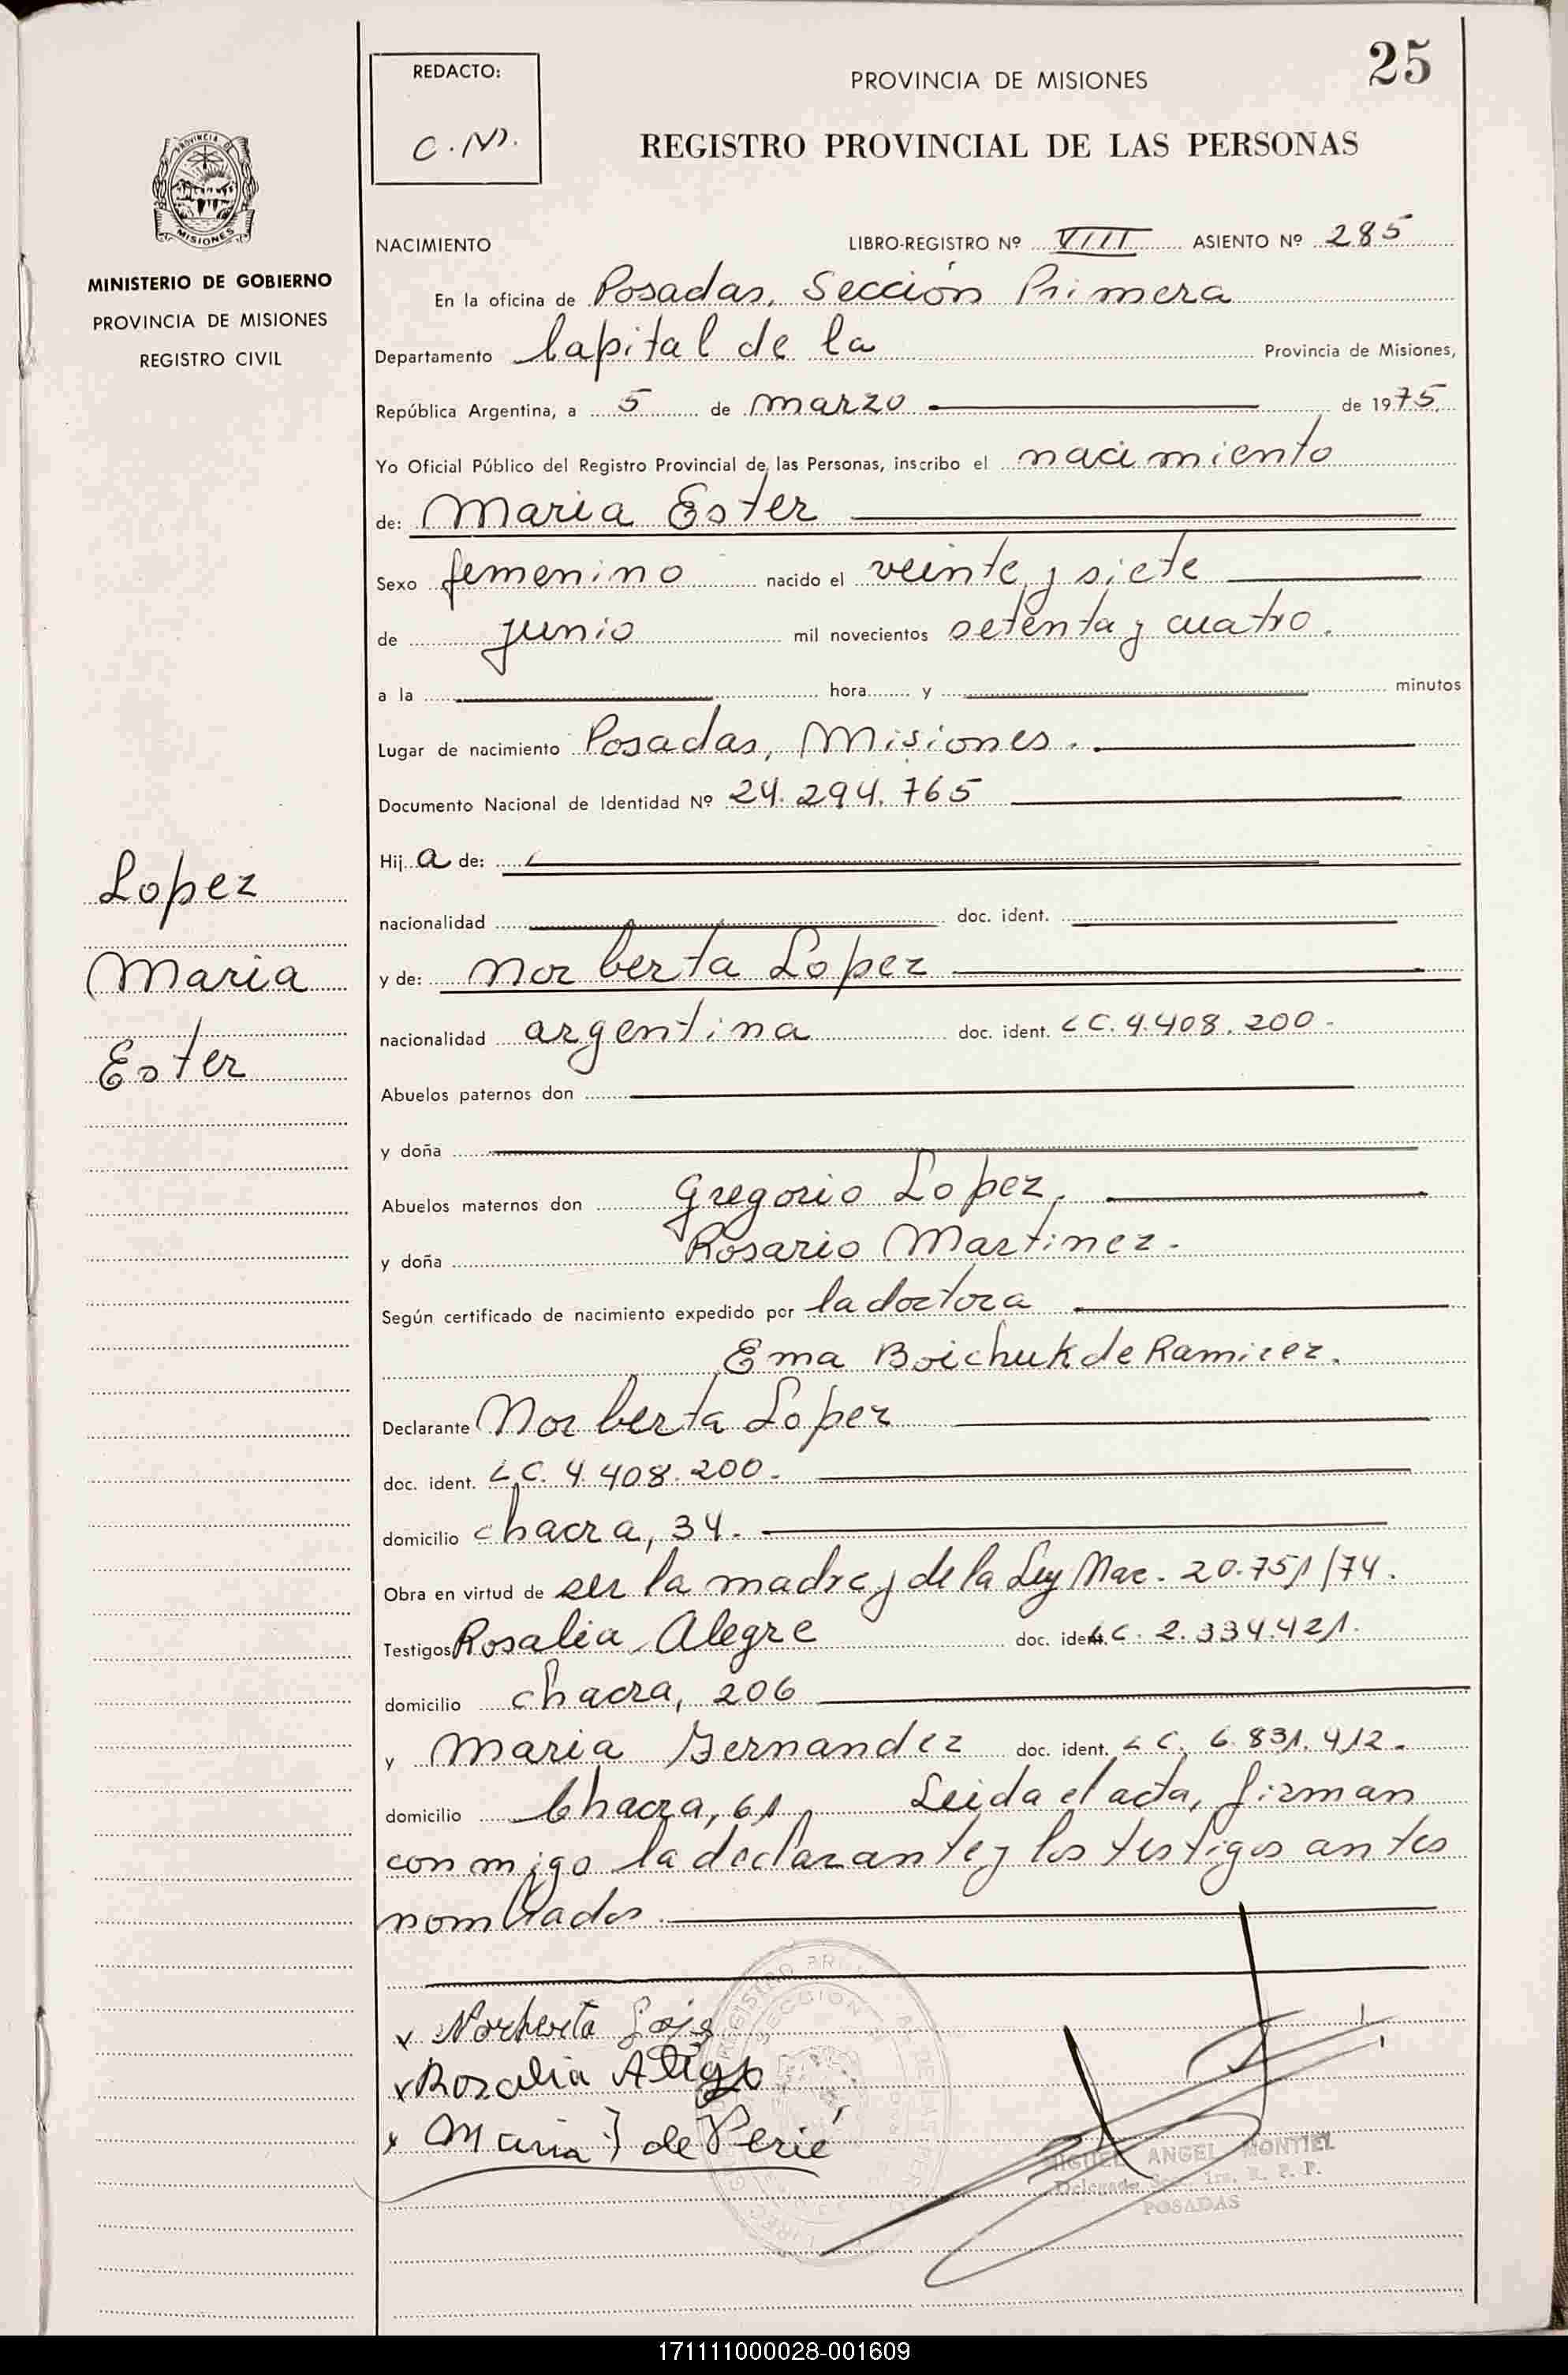 25
REDACTO:
C. N.
PROVINCIA DE MISIONES
REGISTRO PROVINCIAL DE LAS PERSONAS
PROVINCIA DE
MISIONES
MINISTERIO DE GOBIERNO
PROVINCIA DE MISIONES
REGISTRO CIVIL
NACIMIENTO LIBRO-REGISTRO Nº VIII ASIENTO Nº 285
En la oficina de Posadas, Sección Primera
Departamento Capital de la Provincia de Misiones,
República Argentina, a 5 de marzo de 1975.
Yo Oficial Público del Registro Provincial de las Personas, inscribo el nacimiento
de: Maria Ester
Sexo femenino nacido el veinte y siete
de junio mil novecientos setenta y cuatro.
a la hora y minutos
Lugar de nacimiento Posadas, Misiones.
Documento Nacional de Identidad Nº 24.294.765
Hij a de:
nacionalidad doc. ident.
y de: Norberta Lopez
nacionalidad argentina doc. ident. LC. 4.408.200-
Abuelos paternos don
y doña
Abuelos maternos don Gregorio Lopez,
y doña Rosario Martinez.
Según certificado de nacimiento expedido por la doctora
Ema Boichuk de Ramirez.
Declarante Norberta Lopez
doc. ident. L.C. 4.408.200-
domicilio chacra, 34.
Obra en virtud de ser la madre y de la Ley Nac. 20.751/74.
Testigos Rosalia Alegre doc. ident. LC. 2.334.421.
domicilio chacra, 206
y Maria Fernandez doc. ident. LC. 6.831.412.
domicilio Chacra, 61 Leida el acta, firman
conmigo la declarante y los testigos antes
nombrados.
Lopez
Maria
Ester
x Norberta
x Rosalia
x Maria F de Perié
MIGUEL ANGEL MONTIEL
Delegado Secc. 1ra. R. P. P.
POSADAS
171111000028-001609